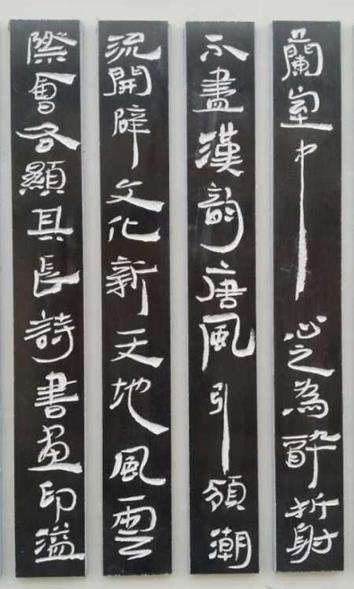 蘭室中心之為醉折射
不盡漢韵唐風引領潮
流開辟文化新天地風雲
際會各顯其長詩書畫印溢